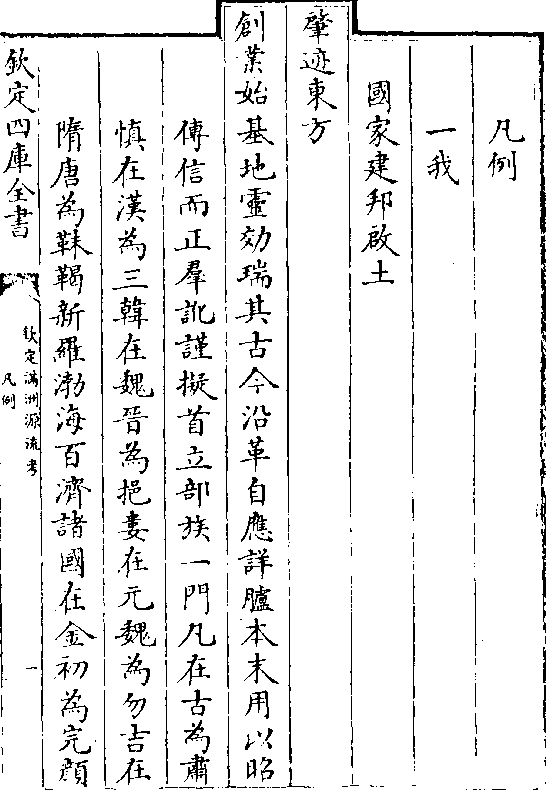 凡例
一我
國家建邦啟土
肇迹東方
創業始基地靈効瑞其古今沿革自應詳臚本末用以昭
傳信而正羣訛謹擬首立部族一門凡在古為肅
慎在漢為三韓在魏晉為挹婁在元魏為勿吉在
隋唐為靺鞨新羅渤海百濟諸國在金初為完顔
欽定四庫全書
欽定滿洲源流考
凡例
一